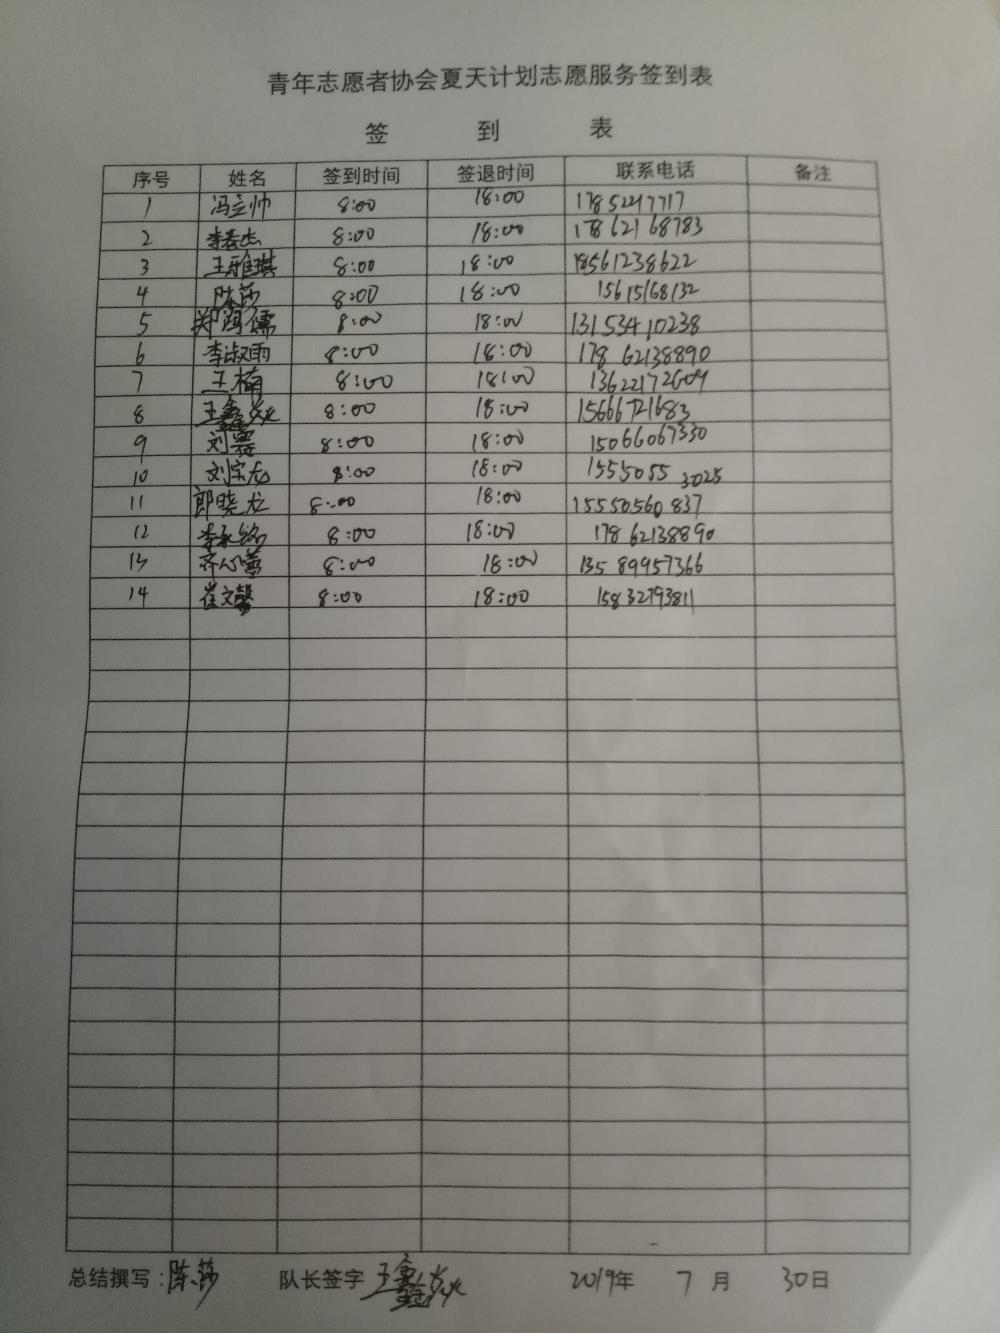 青年志愿者协会夏天计划志愿服务签到表
签 到 表
序号 姓名 签到时间 签退时间 联系电话 备注
1 冯立帅 8:00 18:00 17852217717
2 李春杰 8:00 18:00 17862168783
3 王雅琪 8:00 18:00 18561238622
4 陈莎 8:00 18:00 15615168132
5 郑闻儒 8:00 18:00 13153410238
6 李淑雨 8:00 18:00 17862138890
7 王楠 8:00 18:00 13622172609
8 王鑫焱 8:00 18:00 15666721683
9 刘 8:00 18:00 15066067330
10 刘宗龙 8:00 18:00 15550553025
11 郎晓龙 8:00 18:00 15550560837
12 李永铭 8:00 18:00 17862138890
13 齐心蕾 8:00 18:00 13589957366
14 崔文馨 8:00 18:00 15832793811
总结撰写:陈莎 队长签字 王鑫焱 2019年 7 月 30日